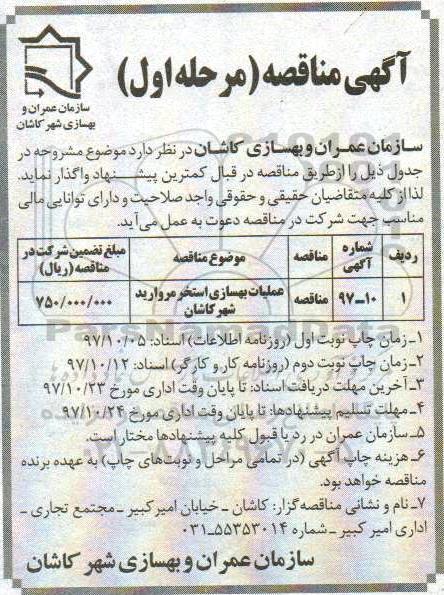 آگهی مناقصه (مرحله اول)
سازمان عمران و
بهسازی شهر کاشان
سازمان عمران و بهسازی کاشان در نظر دارد موضوع مشروحه در
جدول ذیل را از طریق مناقصه در قبال کمترین پیشنهاد واگذار نماید.
لذا از کلیه متقاضیان حقیقی و حقوقی واجد صلاحیت و دارای توانایی مالی
مناسب جهت شرکت در مناقصه دعوت به عمل می‌آید.
ردیف شماره آگهی مناقصه موضوع مناقصه مبلغ تضمین شرکت در مناقصه (ریال)
۱ ۹۷-۱۰ مناقصه عملیات بهسازی استخر مروارید شهر کاشان ۷۵۰/۰۰۰/۰۰۰
۱ـ زمان چاپ نوبت اول (روزنامه اطلاعات) اسناد: ۹۷/۱۰/۰۵
۲ـ زمان چاپ نوبت دوم (روزنامه کار و کارگر) اسناد: ۹۷/۱۰/۱۲
۳ـ آخرین مهلت دریافت اسناد: تا پایان وقت اداری مورخ ۹۷/۱۰/۲۳
۴ـ مهلت تسلیم پیشنهادها: تا پایان وقت اداری مورخ ۹۷/۱۰/۲۴
۵ـ سازمان عمران در رد یا قبول کلیه پیشنهادها مختار است.
۶ـ هزینه چاپ آگهی (در تمامی مراحل و نوبت‌های چاپ) به عهده برنده
مناقصه خواهد بود.
۷ـ نام و نشانی مناقصه‌گزار: کاشان ـ خیابان امیرکبیر ـ مجتمع تجاری ـ
اداری امیر کبیر ـ شماره ۵۵۳۵۳۰۱۴-۰۳۱
سازمان عمران و بهسازی شهر کاشان
ParsNamadData